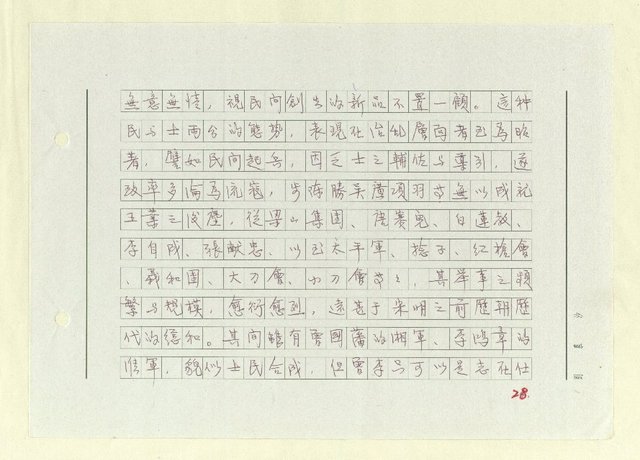 無意無情，視民间創出的新品不置一顧。這种
民与士兩分的態势，表現在治乱層面者已為昭
著，譬如民间起兵，因乏士之輔佐与導引，遂
致率多淪為流寇，步陈勝吴廣項羽等無以成就
王業之後塵，從梁山集團、唐賽兒、白蓮教、
李自成、張献忠、以至太平軍、捻子、红槍會
、義和團、大刀會、小刀會等等，其举事之頻
繁与規模，愈衍愈烈，遠甚于宋明之前歷朝歷
代的總和。其间雖有曾國藩的湘軍、李鴻章的
淮軍，貌似士民合成，但曾李与可以是志在仕
28.